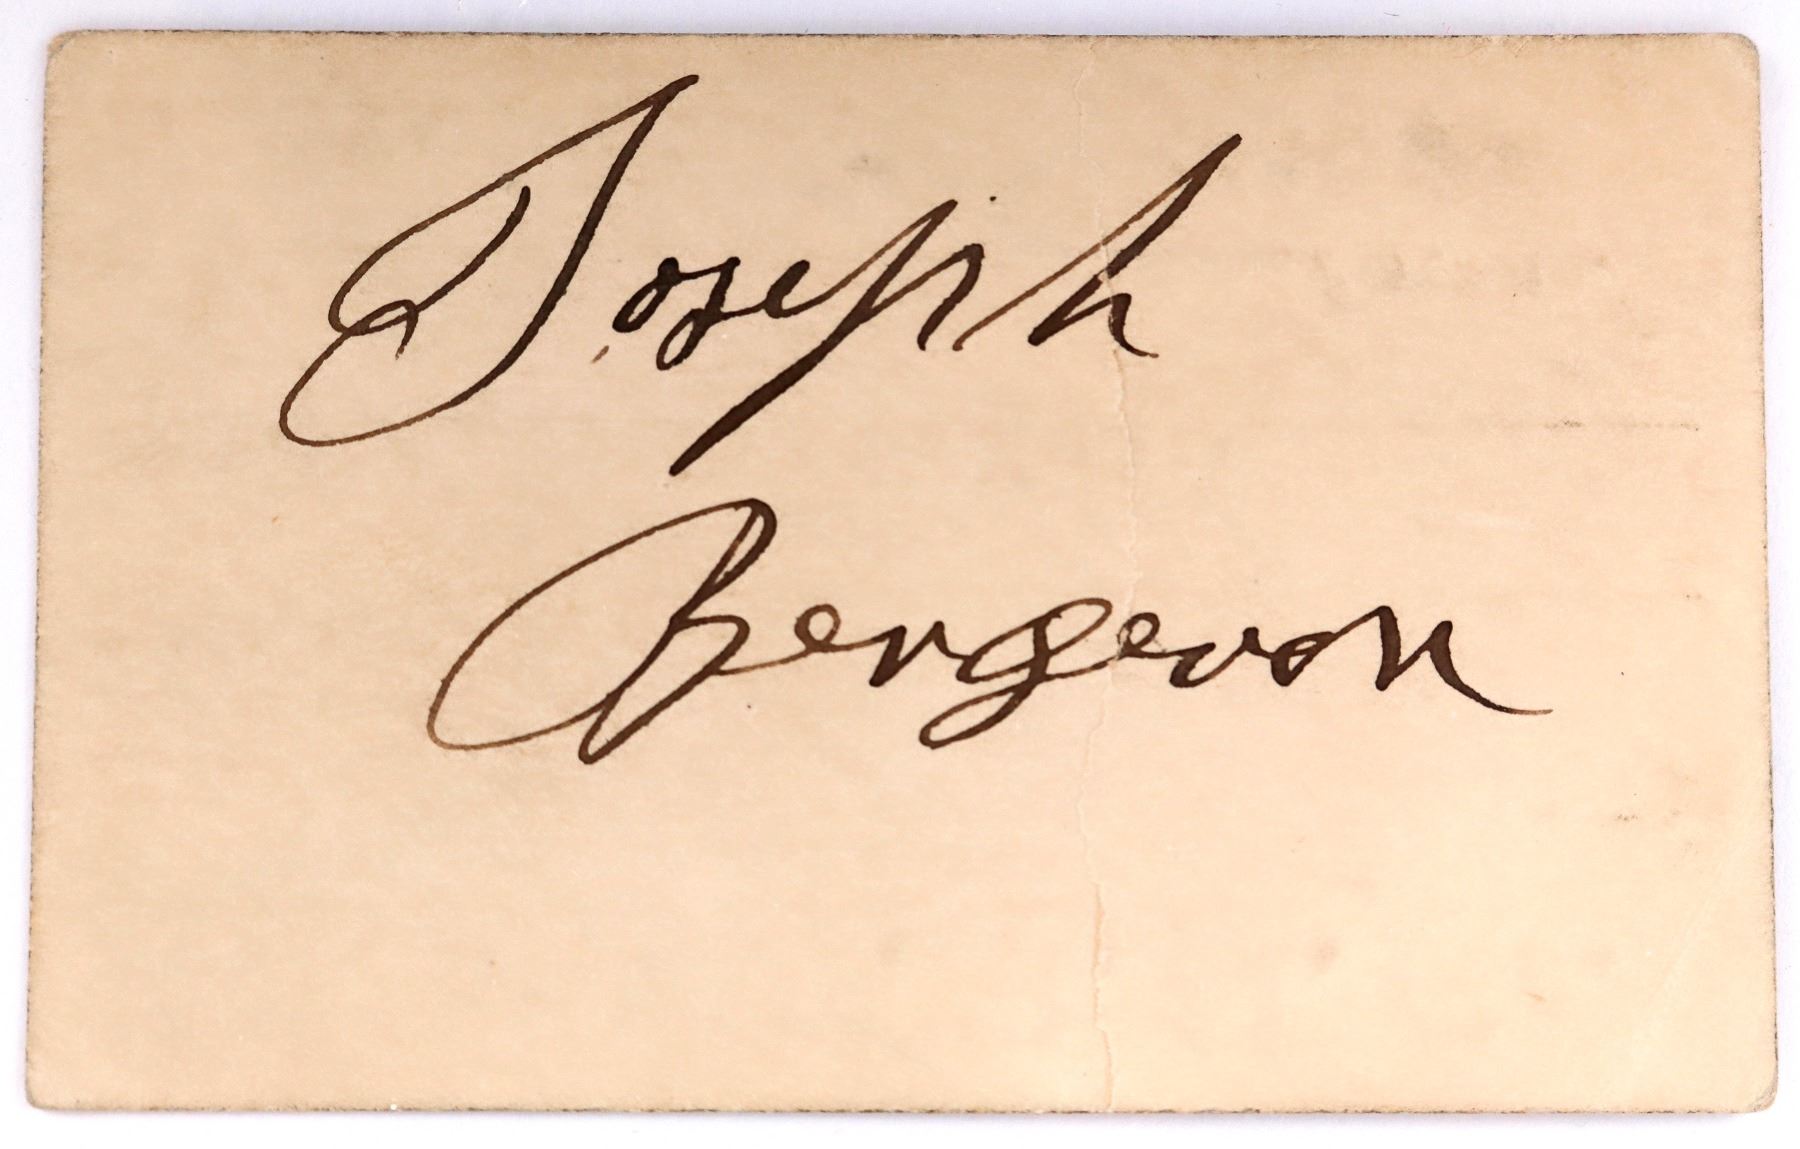 Joseph
Bergeron